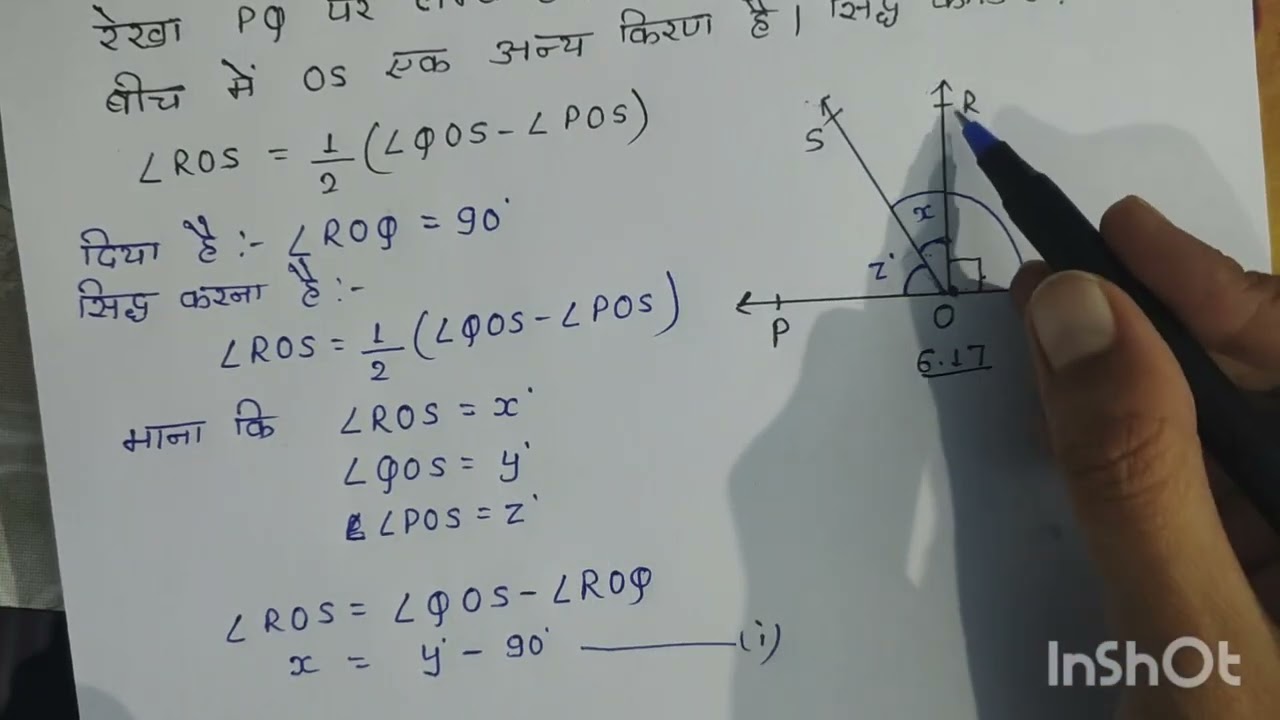 रेखा PQ पर
बीच में OS एक अन्य किरण है। सिद्ध
∠ROS = 1/2 (∠QOS - ∠POS)
दिया है :- ∠ROQ = 90°
सिद्ध करना है :-
∠ROS = 1/2 (∠QOS - ∠POS)
माना कि ∠ROS = x°
∠QOS = y°
∠POS = z°
∠ROS = ∠QOS - ∠ROQ
x = y° - 90° (i)
R
S
x
z°
P
O
6.17
InShOt